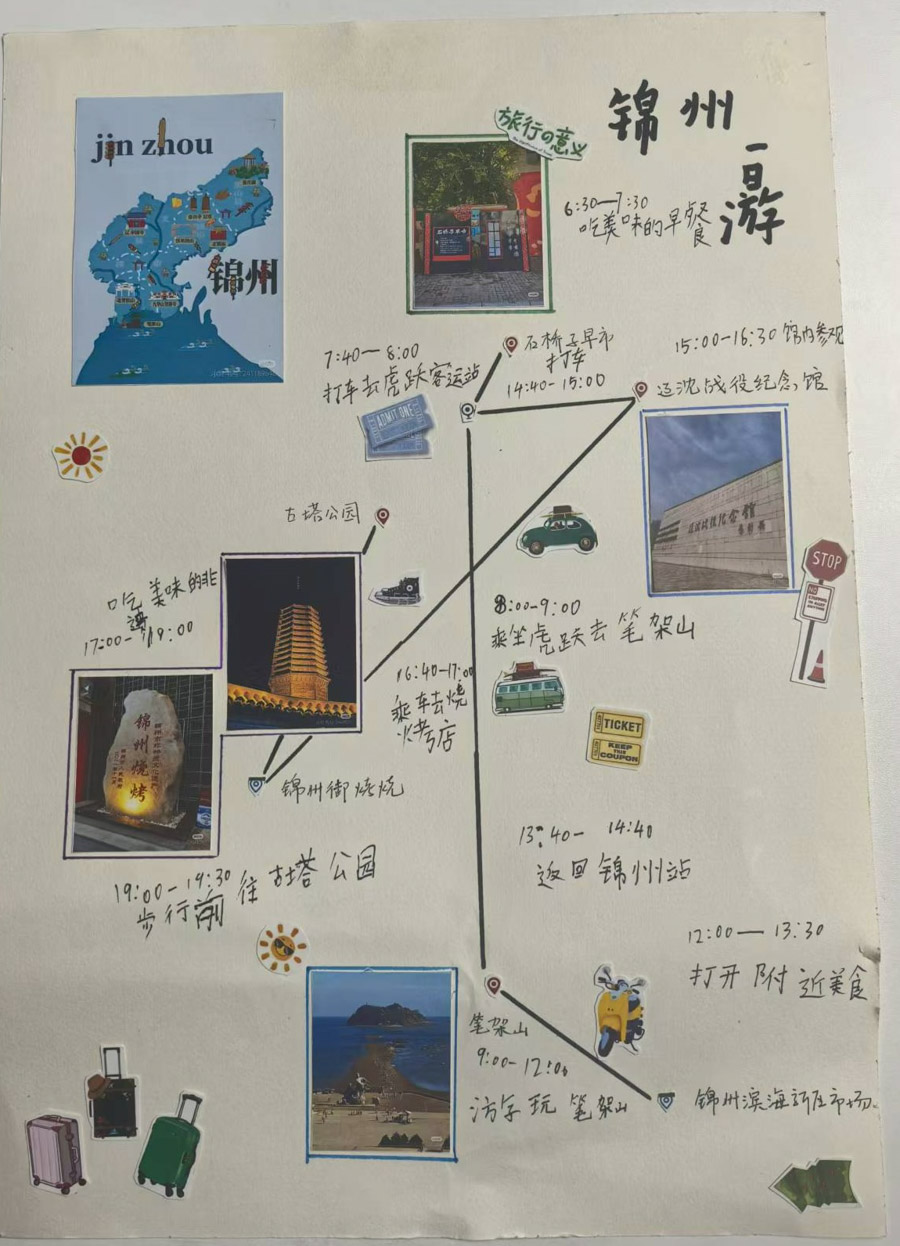 jin zhou
锦州
旅行の意义
锦州
一日游
6:30—7:30
吃美味的早餐
石桥子早市
打车
14:40-15:00
7:40—8:00
打车去虎跃客运站
ADMIT ONE
15:00-16:30 馆内参观
辽沈战役纪念馆
古塔公园
吃美味的
17:00-19:00
STOP
8:00-9:00
乘坐虎跃去笔架山
16:40-17:00
乘车去烧
烤店
TICKET
KEEP
THIS
COUPON
锦州烧烤
锦州御烧烧
13:40- 14:40
返回锦州站
19:00-19:30
步行前往古塔公园
12:00—13:30
打开附近美食
笔架山
9:00-12:00
游玩笔架山